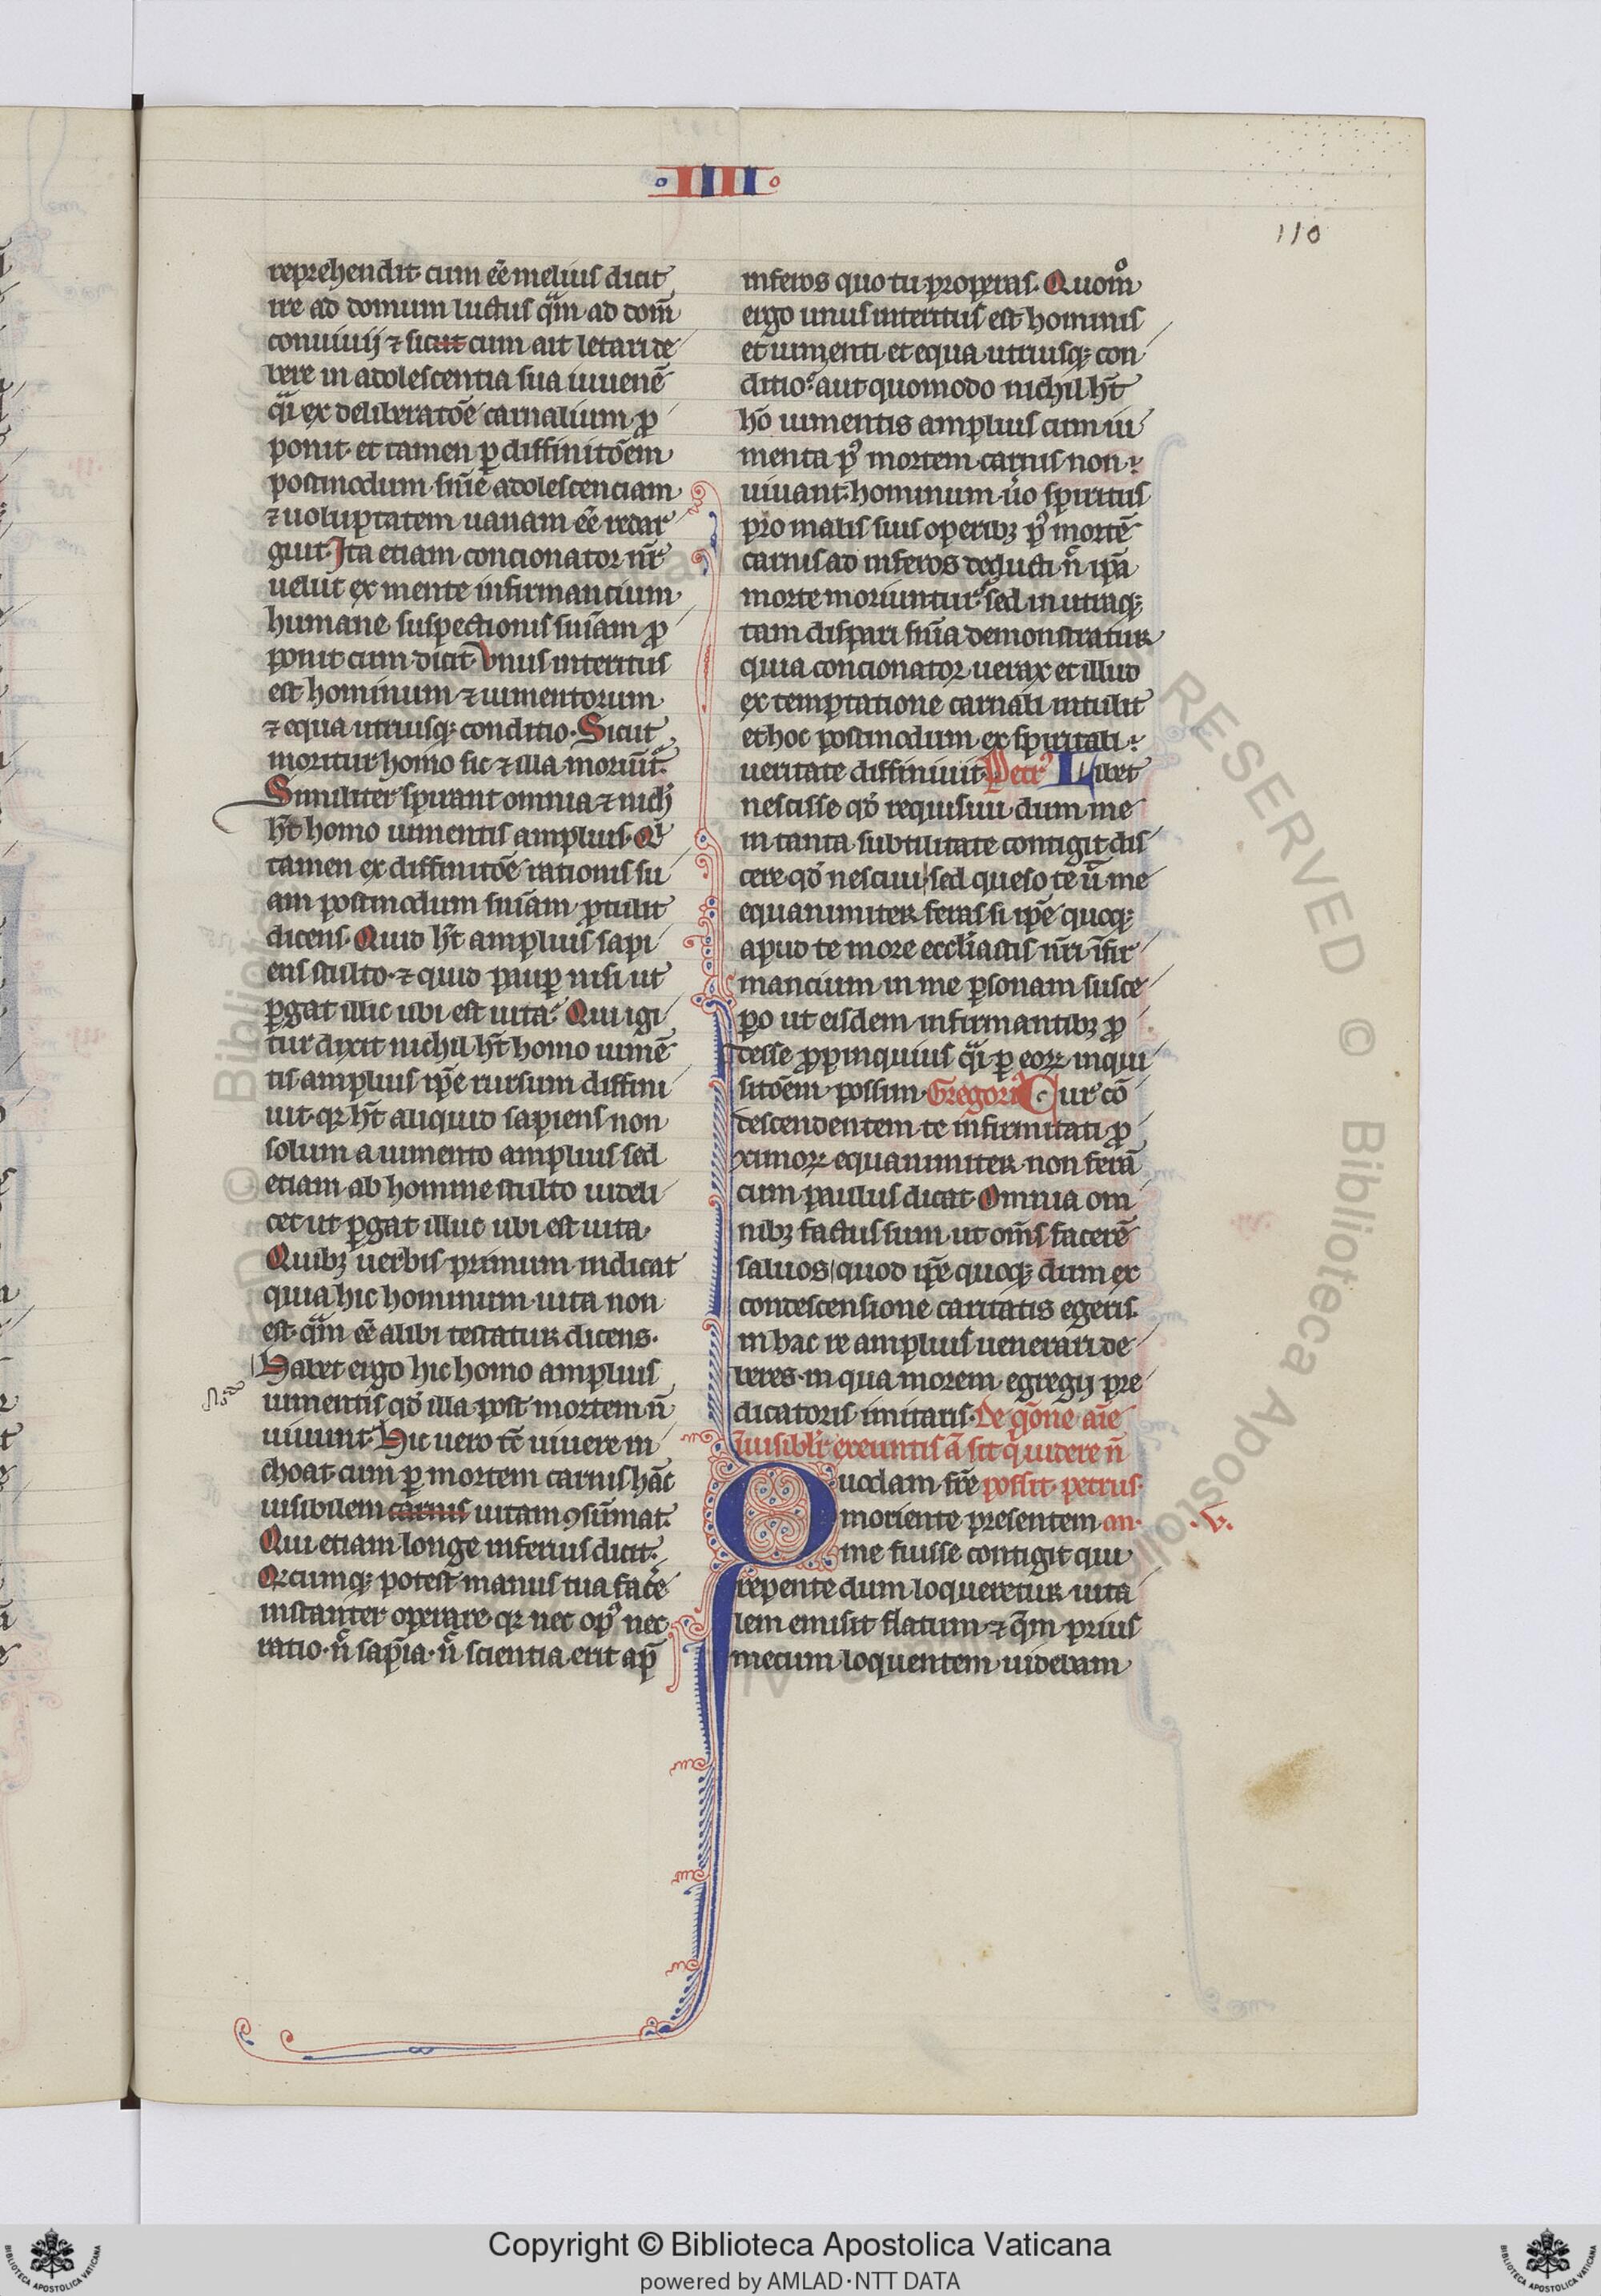 IIII
110
reprehendit cum eē melius dicit
ire ad domum luctus qͣm ad domū
conuiuij ⁊ sicut cum ait letari de
bere in adolescentia sua iuuenē
qͣi ex deliberatōe carnalium ꝓ
ponit et tamen ꝑ diffinitōem
postmodum sniē adolescenciam
⁊ uoluptatem uanam eē redar
guit. Ita etiam concionator nr̄
uelut ex mente infirmancium
humane suspectionis sniām ꝓ
ponit cum dicit Vnus interitus
est hominum ⁊ iumentorum
⁊ equa utriusqꝫ conditio. Sicut
moritur homo sic ⁊ illa moriūtͬ.
Similiter spirant omnia ⁊ nichͥ
hꝫ homo iumentis amplius. Qͥ
tamen ex diffinitōe rationis su
am postmodum sniām ꝓtulit
dicens. Quid ht̄ amplius sapi
ens stulto. ⁊ quid paup̄ nisi ut
ꝑgat illic ubi est uita. Qui igi
tur dixit nichil ht̄ homo iumē
tis amplius ip̄e rursum diffini
uit. qꝛ ht̄ aliquid sapiens non
solum a iumento amplius sed
etiam ab homine stulto uideli
cet ut ꝑgat illuc ubi est uita.
Quibꝫ uerbis primum indicat
quia hic hominum uita non
est. qͣm eē alibi testatur dicens.
Habet ergo hic homo amplius
iumentis qđ illa post mortem n̄
uiuunt. Hic uero tc̄ uiuere in
choat cum ꝑ mortem carnis hāc
uisibilem carnis uitam ꝯsūmat.
Qui etiam longe inferius dicit.
Qꝛcumqꝫ potest manus tua facͤe
instanter operare. qꝛ nec opꝰ nec
ratio. n̄ sapīa. n̄ scientia erit ap̄
inferos quo tu properas. Quomͦ
ergo unus interitus est hominis
et iumenti et equa utriusqꝫ con
ditio. aut quomodo nichil ht̄
hō iumentis amplius cum iu
menta pꝰ mortem carnis non
uiuant. hominum ūo spiritus
pro malis suis operibꝫ pꝰ mortē
carnis ad inferos deducti n̄ ip̄a
morte moriuntur. sed in utraqꝫ
tam dispari snīa demonstratur
quia concionator uerax et illud
ex temptatione carnali intulit
et hoc postmodum ex spiritali
ueritate diffiniuit. Petrꝰ Libet
nescisse qđ requisiui dum me
in tanta subtilitate contigit dis
cere qđ nesciui, sed queso te ū me
equanimiter feras si ip̄e quoqꝫ
apud te more eccliastis nr̄i īfir
mancium in me ꝑsonam susce
ꝑo ut eisdem infirmantibꝫ ꝓ
desse ꝓpinquius qͣi ꝑ eoꝝ inqui
sitōem possim. Gregoriꝰ Cur cō
descendentem te infirmitati ꝓ
ximoꝝ equanimiter non ferā
cum paulus dicat Omnia om
nibꝫ factus sum ut om̄s facerē
saluos, quod ip̄e quoqꝫ dum ex
condescensione caritatis egeris.
in hac re amplius uenerari de
beres. in qua morem egregij pre
dicatoris imitaris. De qōne aīe
īuisiblr̄ exeuntis ā sit qͥ uidere n̄
Quodam fr̄e possit. petrus.
moriente presentem an.
.V.
me fuisse contigit qui
repente dum loqueretur uita
lem emisit flatum. ⁊ qm̄ prius
mecum loquentem uidebam
Copyright © Biblioteca Apostolica Vaticana
powered by AMLAD·NTT DATA